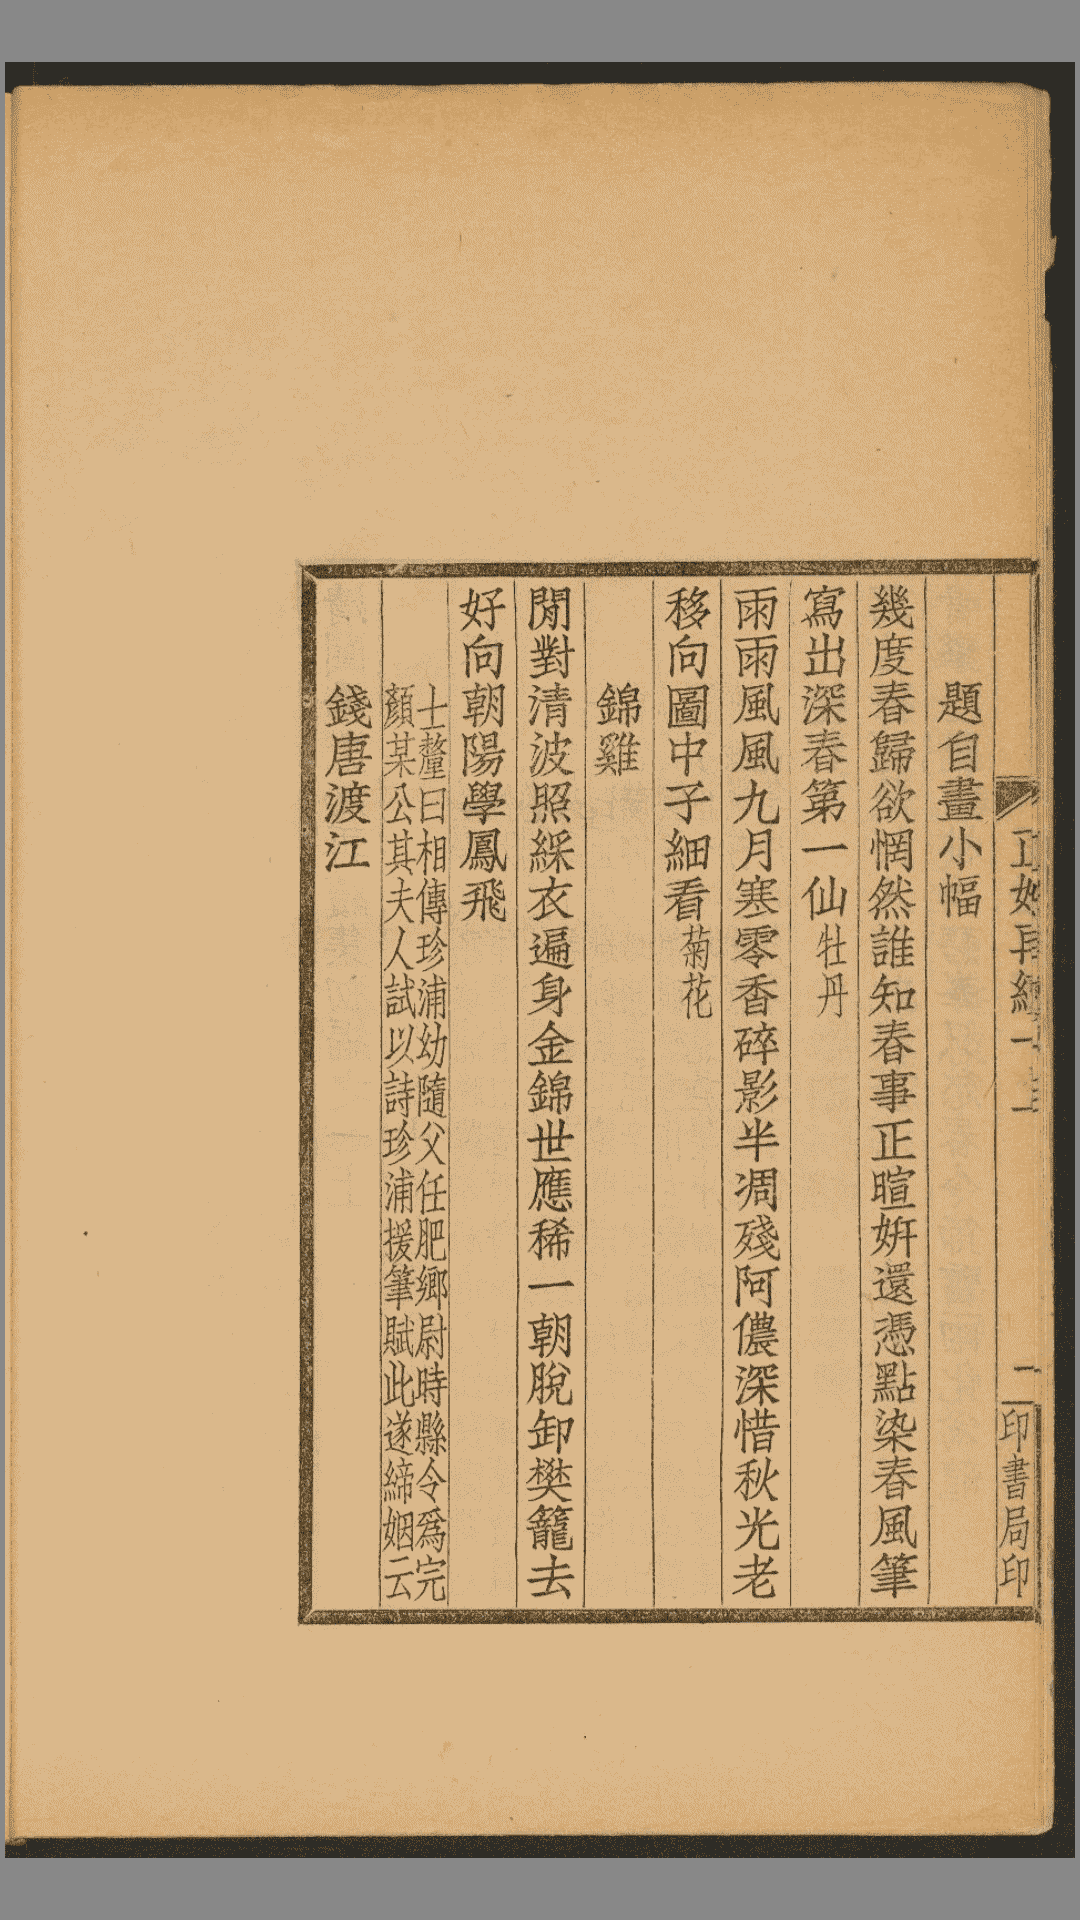 題自畫小幅
幾度春歸欲惘然誰知春事正暄姸還憑點染春風筆
寫出深春第一仙牡丹
雨雨風風九月寒零香碎影半凋殘阿儂深惜秋光老
移向圖中子細看菊花
錦雞
閒對清波照綵衣遍身金錦世應稀一朝脫卸樊籠去
好向朝陽學鳳飛
士釐曰相傳珍浦幼隨父任肥鄉尉時縣令爲完
顏某公其夫人試以詩珍浦援筆賦此遂締姻云
錢唐渡江
二
印書局印